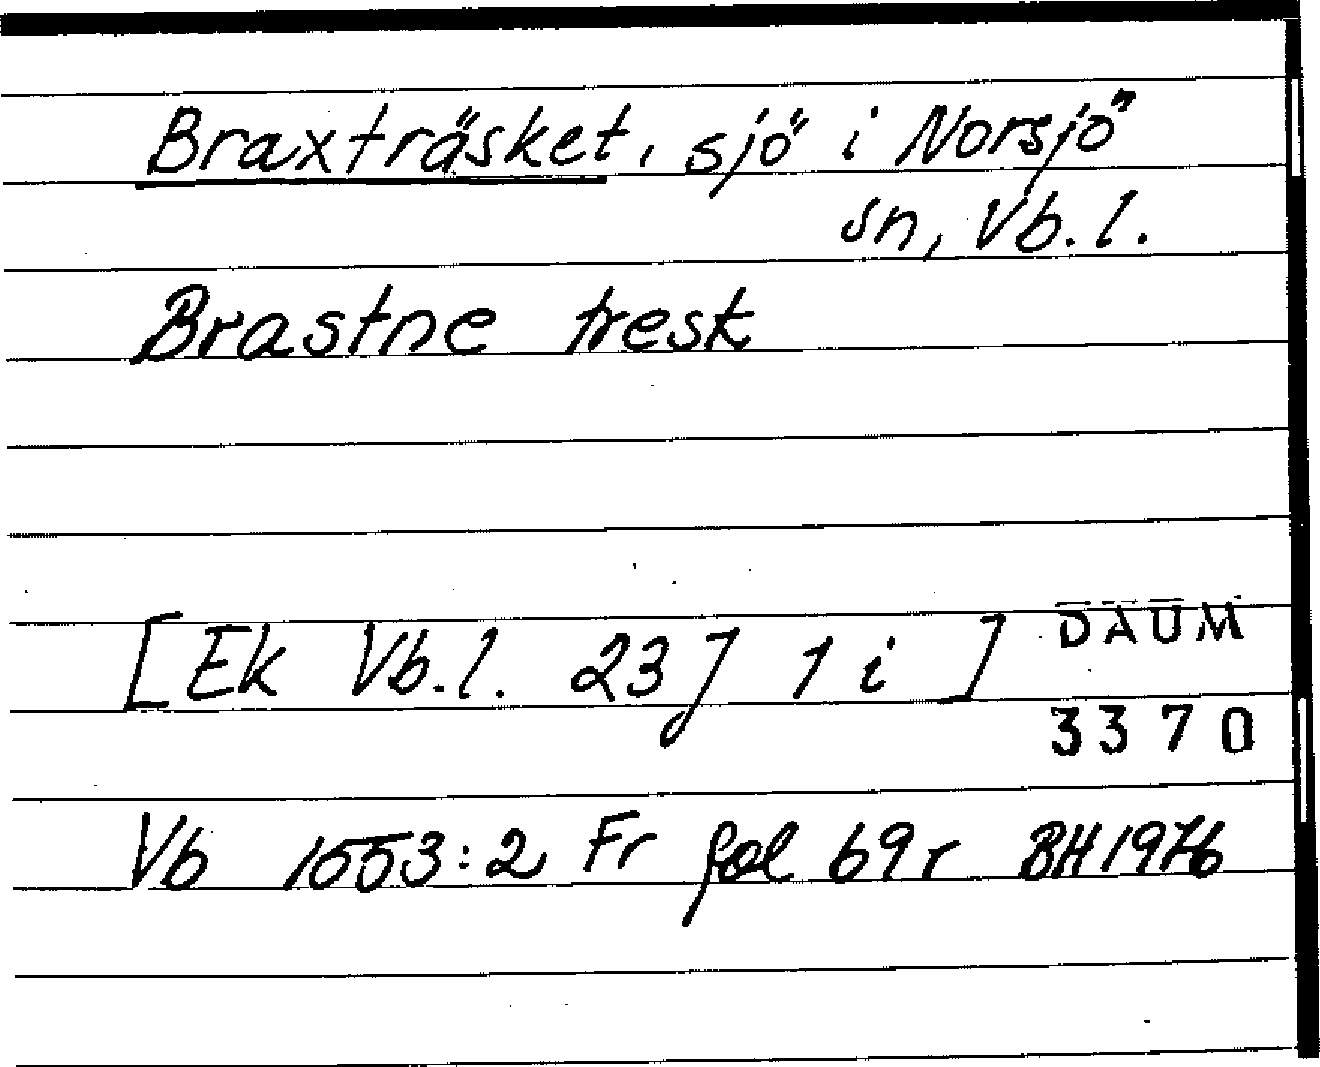 Braxträsket, sjö i Norsjö
sn, Vb. l.
Brastne tresk
[Ek Vb. l. 23 J 1 i ]
DAUM
3370
Vb 1553:2 Fr fol 69r BH 1976